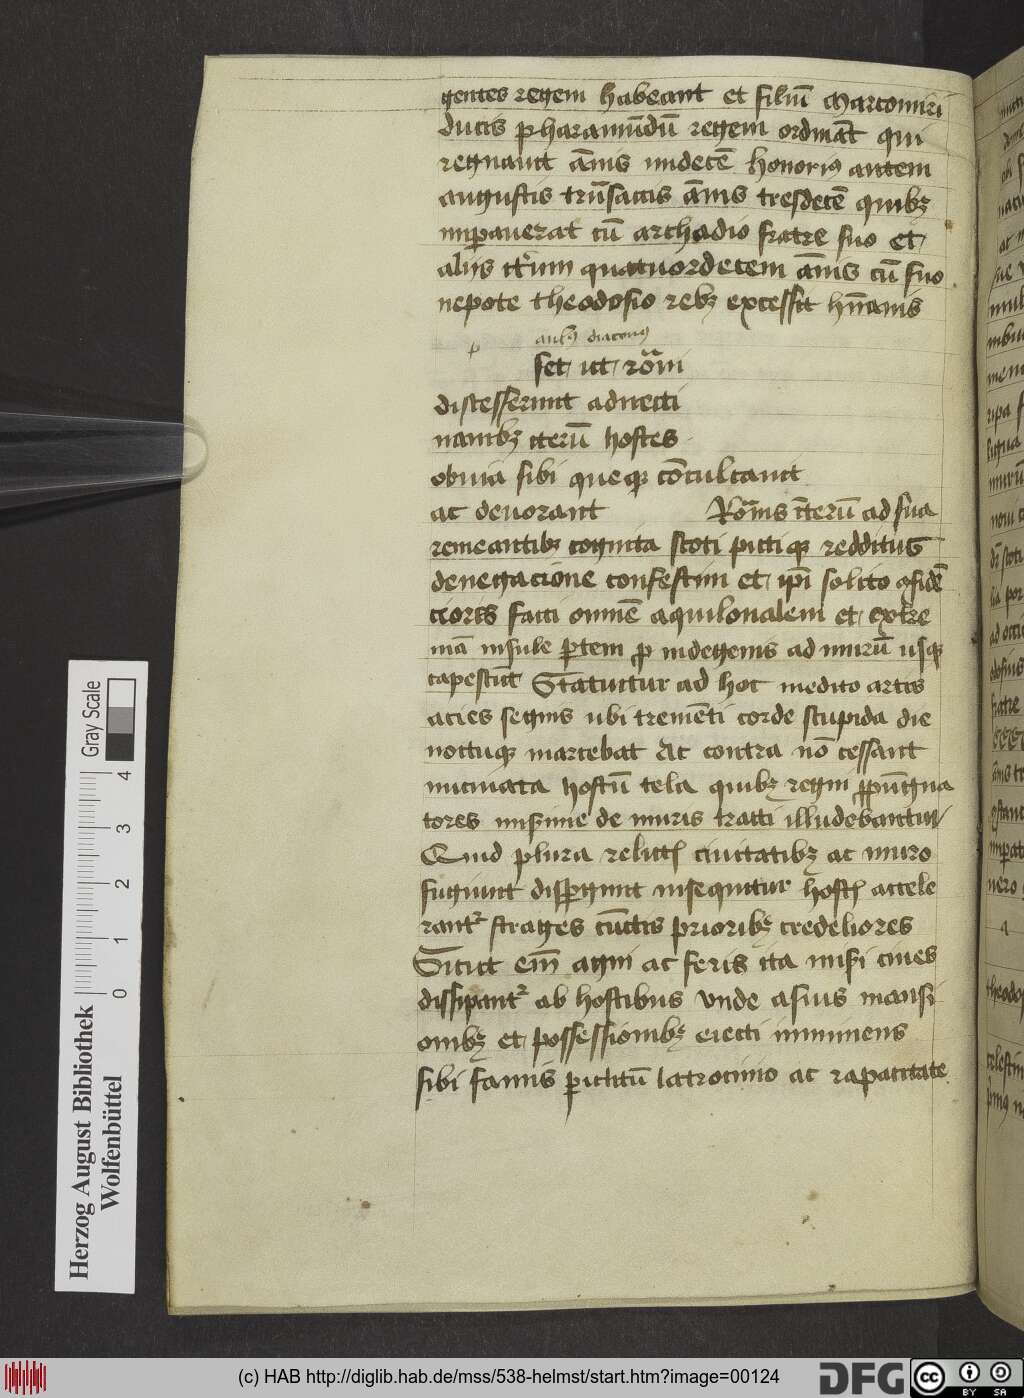 gentes regem habeant et filiū Marcomiri
ducis pharamūdū regem ordināt qui
regnauit ānis undecē honorius autem
augustis trāsactis ānis tresdecē quibȝ
imꝑauerat cū archadio fratre suo et
alijs itm̄ quatuordecem ānis cū suo
nepote theodosio rebȝ excessit hūanis
diaconus
set ut romāi
discesserunt aduecti
nauibȝ iterū hostes
obuia sibi queqꝫ cōculcauit
ac deuorant Romāis iterū ad sua
remeantibȝ cognita scoti pictiqꝫ redditus
denegacione confestim et ip̄i solito ꝯfidē
ciores facti omnē aquilonalem et extre
mā insule ꝑtem ꝓ indegenis ad murū usqꝫ
capescūt Statuitur ad hoc inedito artis
acies segnis ubi tremēti corde stupida die
noctuqꝫ marcebat At contra nō cessant
uncinata hostiū tela quibȝ regni ꝓpūgna
tores misime de muris tracti illudebantur
Quid plura relictis ciuitatibȝ ac muro
fugiunt disꝑgunt insequitur hostis accele
rantr strages cūctis prioribȝ credeliores
Sicut em̄ agni ac feris ita misi ciues
dissipantr ab hostibus Vnde a suis mansi
onibȝ et possessionibȝ eiecti imminens
sibi famis ꝑiclitū latrocinio ac rapacitate
Gray Scale
4
3
2
1
0
Herzog August Bibliothek
Wolfenbüttel
(c) HAB http://diglib.hab.de/mss/538-helmst/start.htm?image=00124
DFG
cc
BY SA